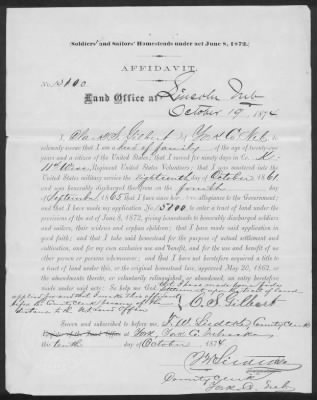 (Soldiers' and Sailors' Homesteads under act June 8, 1872.)
AFFIDAVIT.
No. 5100
Land Office at Lincoln Neb
October 19 1874
I, Gilbert of York Co Neb, do
solemnly swear that I am a head of family, of the age of twenty-one
years and a citizen of the United States; that I served for ninety days in Co. K
11th Regiment United States Volunteers; that I was mustered into the
United States military service the Eighteenth day of October 1861
and was honorably discharged therefrom on the fourth day
of September 1865 that I have since borne true allegiance to the Government; and
that I have made my application No. 5100 to enter a tract of land under the
provisions of the act of June 8, 1872, giving homesteads to honorably discharged soldiers
and sailors, their widows and orphan children; that I have made said application in
good faith; and that I take said homestead for the purpose of actual settlement and
cultivation, and for my own exclusive use and benefit, and for the use and benefit of no
other person or persons whomsoever; and that I have not heretofore acquired a title to
a tract of land under this, or the original homestead law, approved May 20, 1862, or
the amendments thereto, or voluntarily relinquished, or abandoned, an entry heretofore
made under said acts: So help me God
settlement upon tract of land
applied for and that I make this affidavit
before the County Clerk because of the
distance to the US Land Office
C. S. Gilbert
Sworn and subscribed to before me, County Clerk
York, York Co Nebraska
this tenth day of October, 1874
County Clerk
York Co Neb